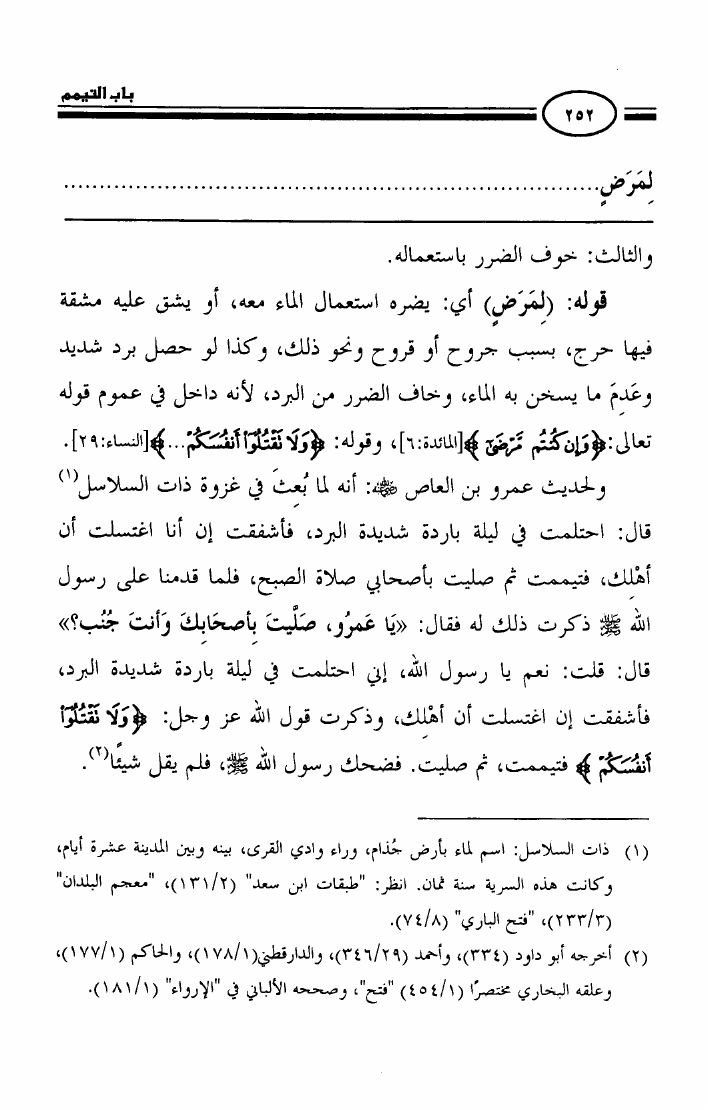 باب التيمم
٢٥٢
لِمَرَضٍ......................................................................
والثالث: خوف الضرر باستعماله.
قوله: (لِمَرَضٍ) أي: يضره استعمال الماء معه، أو يشق عليه مشقة
فيها حرج، بسبب جروح أو قروح ونحو ذلك، وكذا لو حصل برد شديد
وعَدِمَ ما يسخن به الماء، وخاف الضرر من البرد، لأنه داخل في عموم قوله
تعالى: ﴿وَإِن كُنتُم مَّرْضَىٰ﴾ [المائدة:٦]، وقوله: ﴿وَلَا تَقْتُلُوٓا۟ أَنفُسَكُمْ...﴾ [النساء:٢٩].
ولحديث عمرو بن العاص ﷺ: أنه لما بُعِثَ في غزوة ذات السلاسل(١)
قال: احتلمت في ليلة باردة شديدة البرد، فأشفقت إن أنا اغتسلت أن
أهْلِك، فتيممت ثم صليت بأصحابي صلاة الصبح، فلما قدمنا على رسول
الله ﷺ ذكرت ذلك له فقال: «يَا عَمرُو، صَلَّيتَ بِأصحَابِكَ وَأنتَ جُنُب؟»
قال: قلت: نعم يا رسول الله، إني احتلمت في ليلة باردة شديدة البرد،
فأشفقت إن اغتسلت أن أهْلِك، وذكرت قول الله عز وجل: ﴿وَلَا تَقْتُلُوٓا۟
أَنفُسَكُمْ﴾ فتيممت، ثم صليت. فضحك رسول الله ﷺ، فلم يقل شيئًا(٢).
(١) ذات السلاسل: اسم لماء بأرض جُذام، وراء وادي القرى، بينه وبين المدينة عشرة أيام،
وكانت هذه السرية سنة ثمان. انظر: "طبقات ابن سعد" (١٣١/٢)، "معجم البلدان"
(٢٣٣/٣)، "فتح الباري" (٧٤/٨).
(٢) أخرجه أبو داود (٣٣٤)، وأحمد (٣٤٦/٢٩)، والدارقطني(١٧٨/١)، والحاكم (١٧٧/١)،
وعلقه البخاري مختصرًا (٤٥٤/١) "فتح"، وصححه الألباني في "الإرواء" (١٨١/١).